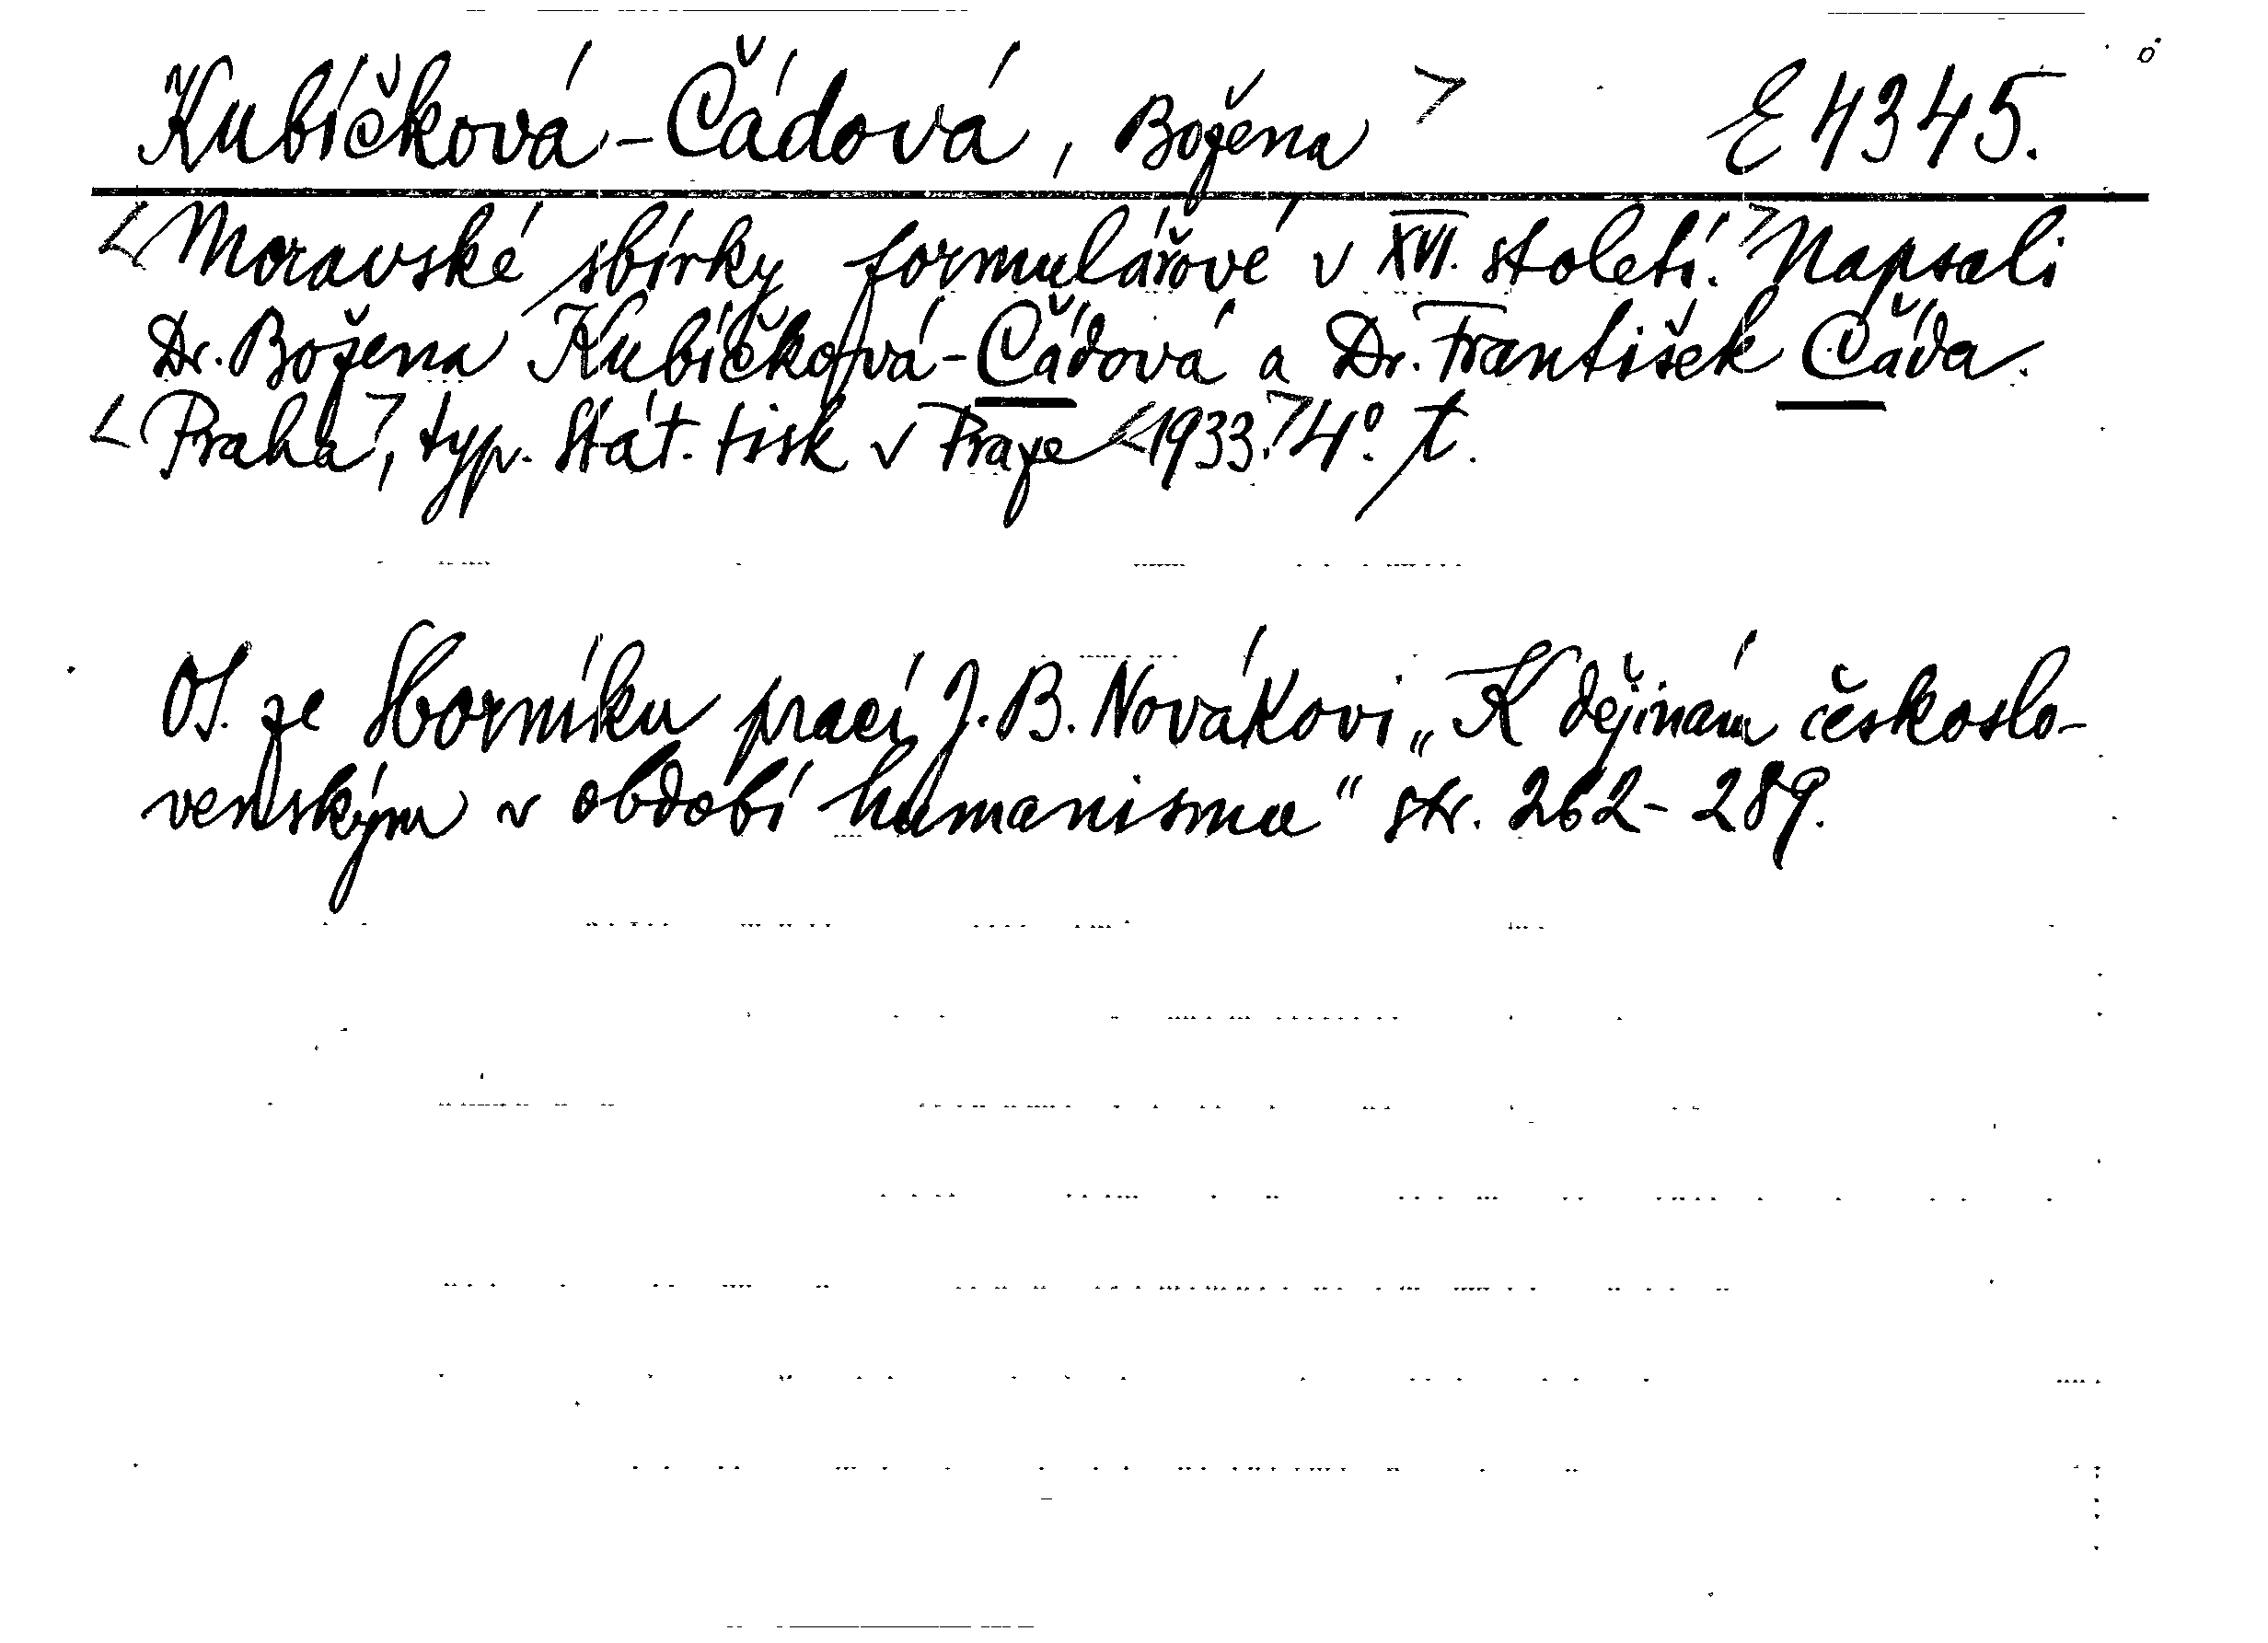 Kubíčková-Čádová, Božena > E 4345.
<Moravské sbírky formulářové v XVI. století.> Napsali
Dr. Božena Kubíčková-Čádová a Dr. František Čáda.
<Praha>, typ. Stát. tisk v Praze <1933.> 4°. t.
OS. ze Sborníku prací J. B. Novákovi „K dějinám českoslo-
venským v období humanismu" str. 262-289.